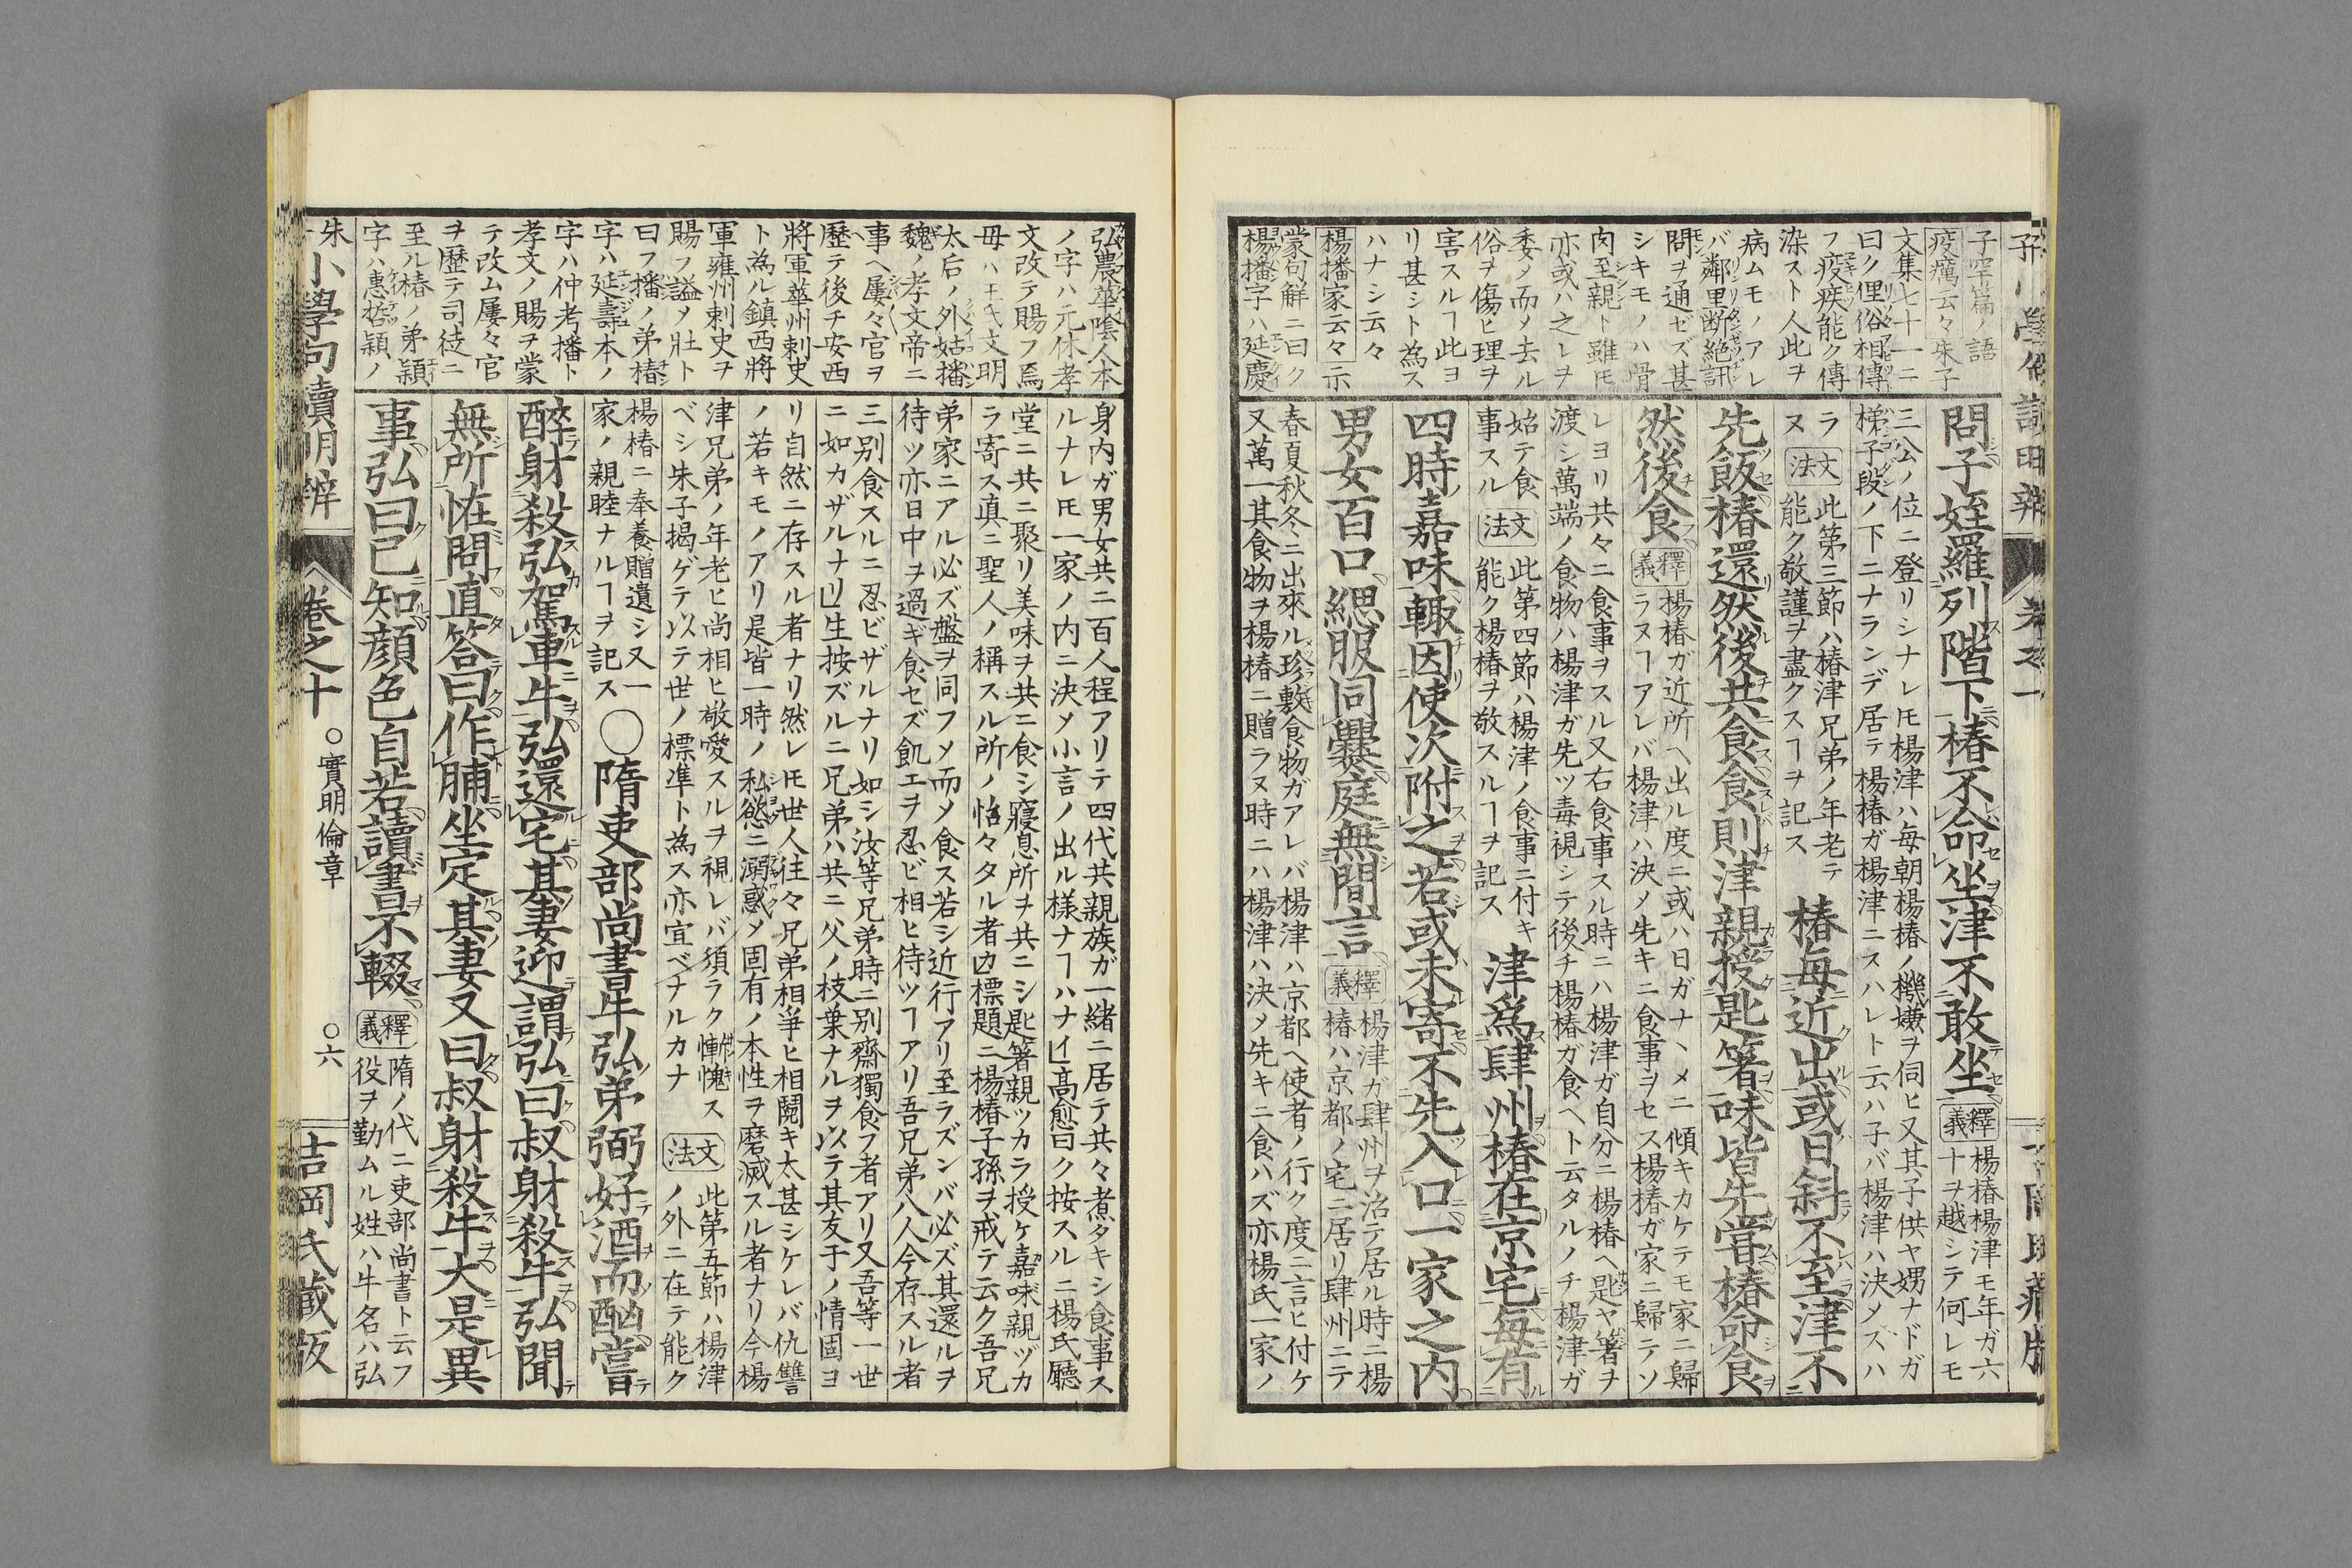 子罕篇ノ語
疫癘云々朱子
文集七十一ニ
曰ク俚俗相傳
フ疫疾能ク傳
染スト人此ヲ
病ムモノアレ
バ鄰里断絶訊
問ヲ通ゼズ甚
シキモノハ骨
肉至親ト雖𪜈
亦或ハ之レヲ
委メ而メ去ル
俗ヲ傷ヒ理ヲ
害スルヿ此ヨ
リ甚シト為ス
ハナシ云々
楊播家云々示
蒙句解ニ曰ク
楊播字ハ延慶
問子姪羅列階下椿不命坐津不敢坐
釋義
楊椿楊津モ年ガ六
十ヲ越シテ何レモ
三公ノ位ニ登リシナレ𪜈楊津ハ毎朝楊椿ノ機嫌ヲ伺ヒ又其子供ヤ甥ナドガ
梯子段ノ下ニナランデ居テ楊椿ガ楊津ニスハレト云ハ子バ楊津ハ决メスハ
ラヌ
文法
此第三節ハ椿津兄弟ノ年老テ
能ク敬謹ヲ盡クスヿヲ記ス
椿每近出或日斜不至津不
先飯椿還然後共食食則津親授匙箸味皆先嘗椿命食
然後食
釋義
楊椿ガ近所ヘ出ル度ニ或ハ日ガナヽメニ傾キカケテモ家ニ歸
ラヌヿアレバ楊津ハ决メ先キニ食事ヲセス楊椿ガ家ニ歸テソ
レヨリ共々ニ食事ヲスル又右食事スル時ニハ楊津ガ自分ニ楊椿ヘ匙ヤ箸ヲ
渡シ萬端ノ食物ハ楊津ガ先ツ毒視シテ後チ楊椿ガ食ヘト云タルノチ楊津ガ
始テ食
事スル
文法
此第四節ハ楊津ノ食事ニ付キ
能ク楊椿ヲ敬スルヿヲ記ス
津爲肆州椿在京宅每有
四時嘉味輙因使次附之若或未寄不先入口一家之内
男女百口緦服同爨庭無間言
釋義
楊津ガ肆州ヲ治テ居ル時ニ楊
椿ハ京都ノ宅ニ居リ肆州ニテ
春夏秋冬ニ出來ル珍敷食物ガアレバ楊津ハ京都ヘ使者ノ行ク度ニ言ヒ付ケ
又萬一其食物ヲ楊椿ニ贈ラヌ時ニハ楊津ハ决メ先キニ食ハズ亦楊氏一家ノ
弘農華陰人本
ノ字ハ元休孝
文改テ賜フ焉
母ハ王氏文明
太后ノ外姑播
魏ノ孝文帝ニ
事ヘ屢々官ヲ
歷テ後チ安西
將軍華州刺史
ト為ル鎮西將
軍雍州刺史ヲ
賜フ謚メ壯ト
曰フ播ノ弟椿
字ハ延壽本ノ
字ハ仲考播ト
孝文ノ賜ヲ蒙
テ改ム屢々官
ヲ歷テ司徒ニ
至ル椿ノ弟穎
字ハ惠哲穎ノ
身内ガ男女共ニ百人程アリテ四代共親族ガ一緒ニ居テ共々煮タキシ食事ス
ルナレ𪜈一家ノ内ニ决メ小言ノ出ル様ナヿハナイ高愈曰ク按スルニ楊氏聽
堂ニ共ニ聚リ美味ヲ共ニ食シ寢息所ヲ共ニシ匙箸親ツカラ授ケ嘉味親ヅカ
ラ寄ス真ニ聖人ノ稱スル所ノ怡々タル者カ標題ニ楊椿子孫ヲ戒テ云ク吾兄
弟家ニアル必ズ盤ヲ同フメ而メ食ス若シ近行アリ至ラズンバ必ズ其還ルヲ
待ツ亦日中ヲ過ギ食セズ飢エヲ忍ビ相ヒ待ツヿアリ吾兄弟八人今存スル者
三別食スルニ忍ビザルナリ如シ汝等兄弟時ニ別齋獨食フ者アリ又吾等一世
ニ如カザルナリ生按ズルニ兄弟ハ共ニ父ノ枝葉ナルヲ以テ其友于ノ情固ヨ
リ自然ニ存スル者ナリ然レ𪜈世人往々兄弟相爭ヒ相鬩キ太甚シケレバ仇讐
ノ若キモノアリ是皆一時ノ私慾ニ溺惑メ固有ノ本性ヲ磨滅スル者ナリ今楊
津兄弟ノ年老ヒ尚相ヒ敬愛スルヲ視レバ須ラク慚愧ス
ベシ朱子揭ゲテ以テ世ノ標凖ト為ス亦宜ベナルカナ
文法
此第五節ハ楊津
ノ外ニ在テ能ク
楊椿ニ奉養贈遺シ又一
家ノ親睦ナルヿヲ記ス
○隋吏部尚書牛弘弟弼好酒而酗嘗
醉射殺弘駕車牛弘還宅其妻迎謂弘曰叔射殺牛弘聞
無所恠問直答曰作脯坐定其妻又曰叔射殺牛大是異
事弘曰已知顔色自若讀書不輟
釋義
隋ノ代ニ吏部尚書ト云フ
役ヲ勤ムル姓ハ牛名ハ弘
小學句讀明辨 卷之十 ○實明倫章 ○六 吉岡氏藏版